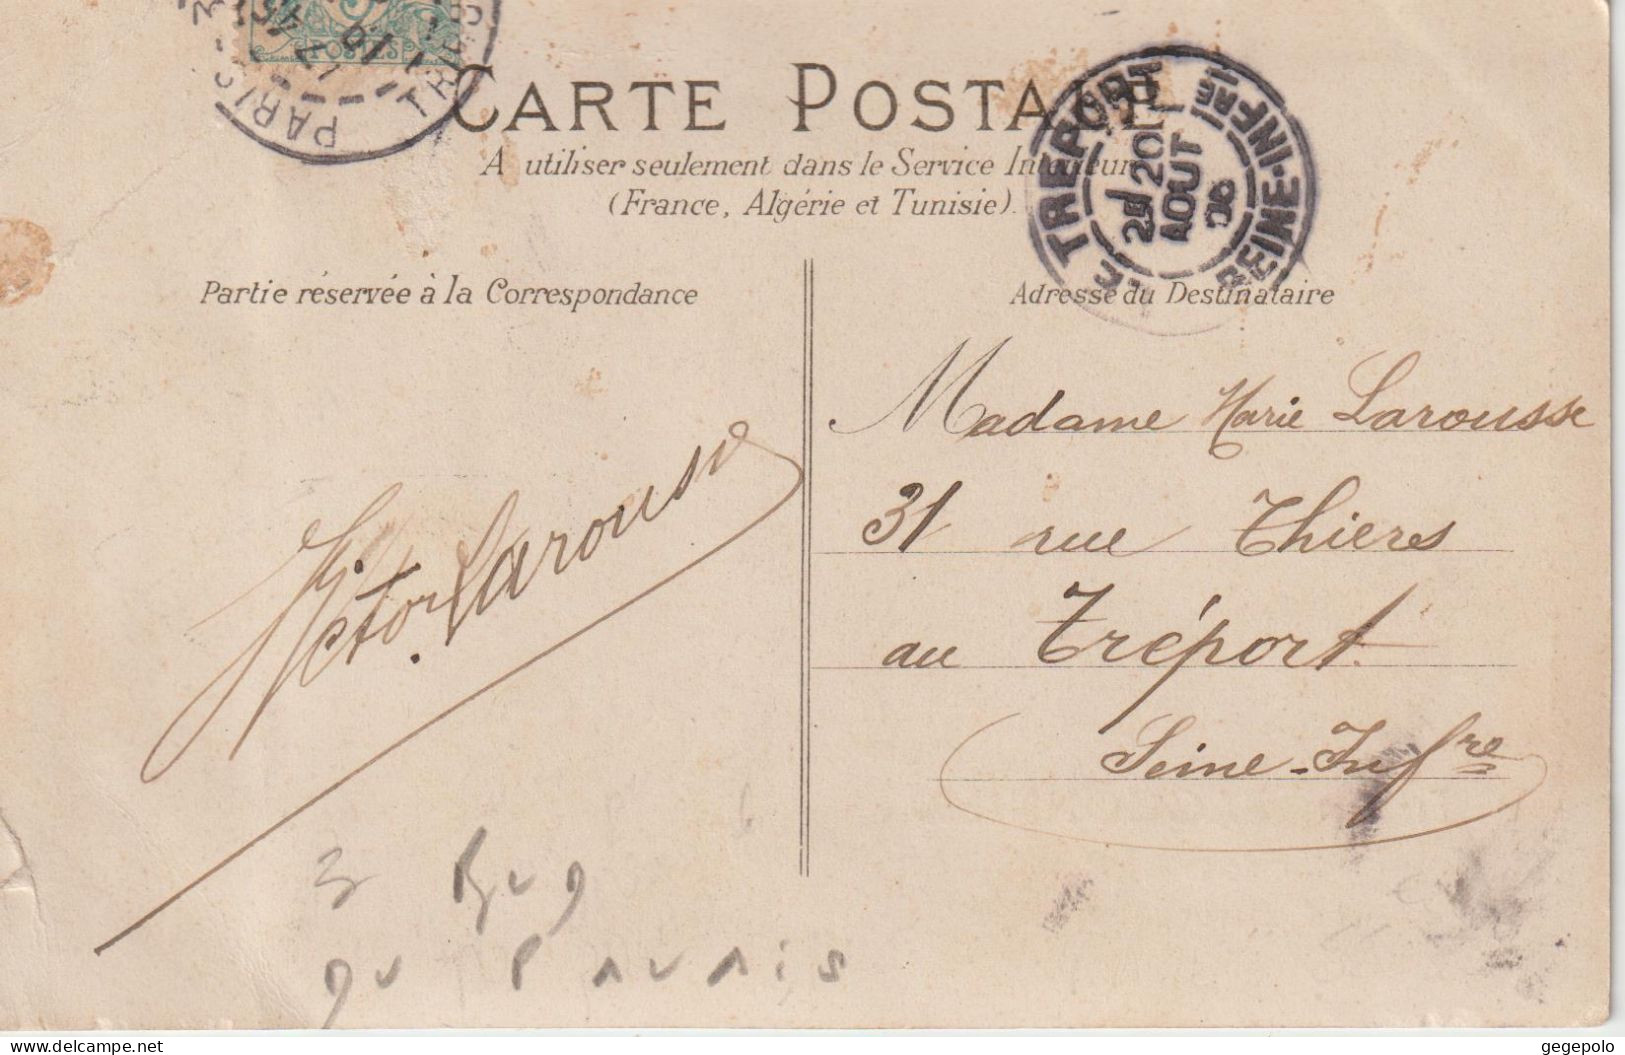 POSTES
PARIS
CARTE POSTALE
A utiliser seulement dans le Service Intérieur
(France, Algérie et Tunisie).
LE TREPORT
20
AOUT
06
SEINE-INFRE
Partie réservée à la Correspondance
Adresse du Destinataire
Madame Marie Larousse
31 rue Thieres
au Tréport
Seine-Infre
Victor Larousse
3
du
www.delcampe.net
gegepolo